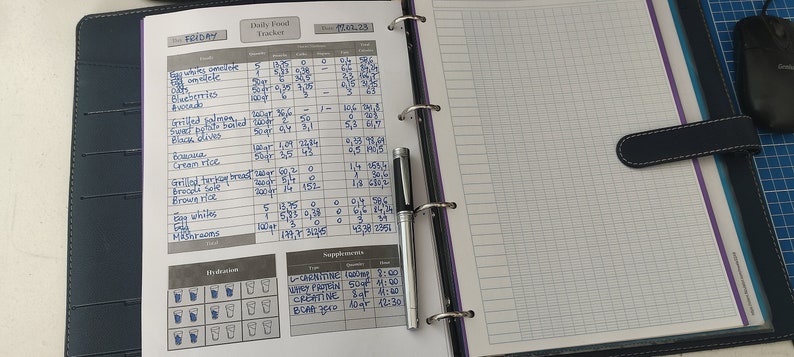 Daily Food
Tracker
Day: FRIDAY
Date: 17.02.23
Quantity Protein Carbs Sugars Fats Total Calories
Egg whites omellete 5 13,75 0 0 0,4 58,6
Egg omellete 1 5,83 0,38 — 6,6
Oats 50gr 6 30,5 2,3
Blueberries 50gr 0,35 7,25 0,15
Avocado 100gr 6 3 — 3 63
Grilled salmon 200gr 36,6 — — 10,6 241,8
Sweet potato boiled 200gr 2 50 0 203
Black olives 50gr 0,4 3,1 5,3 61,7
Banana 100gr 1,09 22,84 0,33 98,69
Cream rice 50gr 3,5 43 0,5 190,5
Grilled turkey breast 200gr 60,2 0 1,4 253,4
Brocoli sole 200gr 5,4 0 1 30,6
Brown rice 200gr 14 152 1,8 680,2
Egg whites 5 13,75 0 0 0,4 58,6
Egg 1 5,83 0,38 0 6,6 84,24
Mashrooms 100gr 3 0 0 3 39
Total 177,7 312,45 43,38 2351
Hydration
Supplements
Type Quantity Hour
L-CARNITINE 1000mg 8:00
WHEY PROTEIN 50gr 11:00
CREATINE 8gr 11:00
BCAA zero 10gr 12:30
Genius